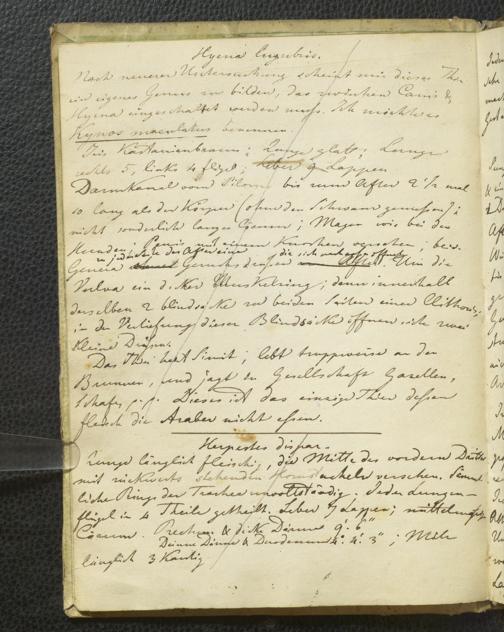 Hyena
Nach neuerer Untersuchung scheint mir dieses Thier
ein eigenes Genus zu bilden, das zwischen Canis &
Hyena eingeschaltet werden muss. Ich möchte es
Kynos maculatus benennen.
Iris Kastanienbraun; Zunge glatt; Lunge
rechts 5, links 4 flügel; Leber 9 Lappen
Darmkanal vom bis zum After 2 1/2 mal
so lang als der Körper (ohne den Schwanz gemessen);
nicht sonderlich langes Coecum; Magen wie bei den
Hunden; Penis mit einem Knochen versehen; bei
die sich
Um die
Vulva ein dicker Muskelring; dann innerhalb
derselben 2 blindsäcke zu beiden Seiten einer Clithoris;
in der Vertiefung dieser Blindsäcke öffnen sich zwei
kleine Drüsen.
Das Thier heist Simir; lebt truppweise an den
Brunnen, und jagt in Gesellschaft Gazellen,
Schafe, p.p. Dieses ist das einzige Thier dessen
fleisch die Araber nicht essen.
Herpestes dispar.
Zunge länglich fleischig, die Mitte des vordern
mit rückwerts stehenden stacheln versehen. Sämt-
liche Ringe der Trachea unvollständig; Jeder Lungen-
flügel in 4 Theile getheilt. Leber 9 Lappen;
Coecum. Rectum & dicke Därme 9". 6"'
Dünne Därme & Duodenum 4'. 4". 3"'; Milz
länglich 3 Kantig